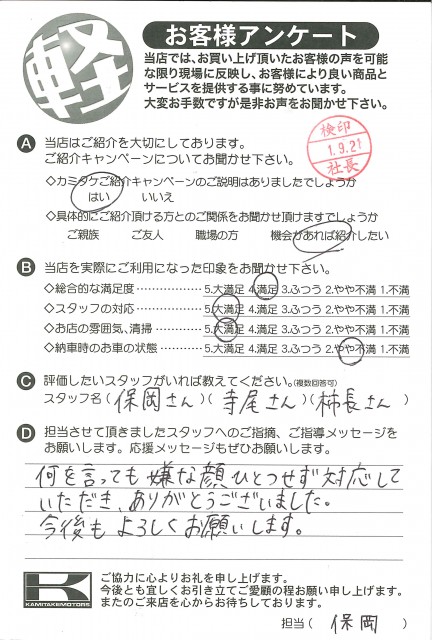 軽
お客様アンケート
当店では、お買い上げ頂いたお客様の声を可能
な限り現場に反映し、お客様により良い商品と
サービスを提供する事に努めています。
大変お手数ですが是非お声をお聞かせ下さい。
検印
1.9.21
社長
A 当店はご紹介を大切にしております。
ご紹介キャンペーンについてお聞かせ下さい。
◇カミタケご紹介キャンペーンのご説明はありましたでしょうか
はい いいえ
◇具体的にご紹介頂ける方とのご関係をお聞かせ頂けますでしょうか
ご親族 ご友人 職場の方 機会があれば紹介したい
B 当店を実際にご利用になった印象をお聞かせ下さい。
◇総合的な満足度 ……………… 5.大満足 4.満足 3.ふつう 2.やや不満 1.不満
◇スタッフの対応 ……………… 5.大満足 4.満足 3.ふつう 2.やや不満 1.不満
◇お店の雰囲気、清掃 ………… 5.大満足 4.満足 3.ふつう 2.やや不満 1.不満
◇納車時のお車の状態 ………… 5.大満足 4.満足 3.ふつう 2.やや不満 1.不満
C 評価したいスタッフがいれば教えてください。(複数回答可)
スタッフ名(保岡さん)(寺尾さん)(柿長さん)
D 担当させて頂きましたスタッフへのご指摘、ご指導メッセージを
お願いします。応援メッセージもぜひお願いします。
何を言っても嫌な顔ひとつせず対応して
いただき、ありがとうございました。
今後もよろしくお願いします。
K
KAMITAKEMOTORS
ご協力に心よりお礼を申し上げます。
今後とも宜しくお引き立てご愛顧の程お願い申し上げます。
またのご来店を心からお待ちしております。
担当(保岡)